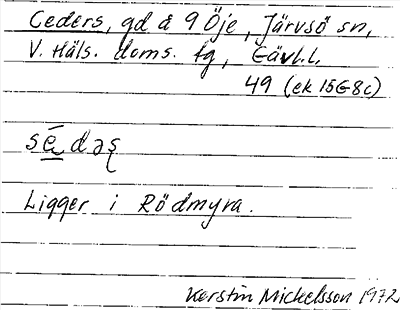 Ceders, gd å 9 Öje, Järvsö sn,
V. Häls. doms. tg, Gävl.l.
49 (ek 15G8c)
sé̱dəş
Ligger i Rödmyra.
Kerstin Mickelsson 1972